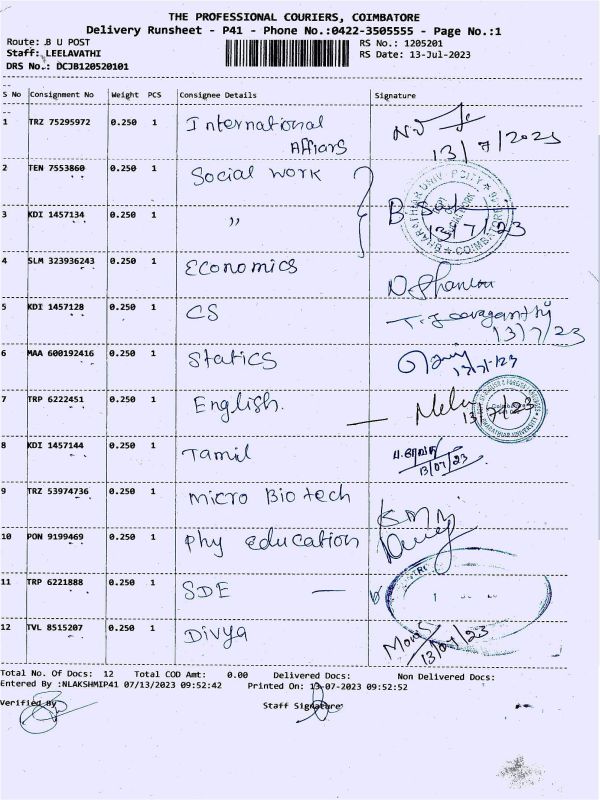 THE PROFESSIONAL COURIERS, COIMBATORE
Delivery Runsheet - P41 - Phone No.:0422-3505555 - Page No.:1
Route: B U POST RS No.: 1205201
Staff: LEELAVATHI RS Date: 13-Jul-2023
DRS No.: DCJB120520101
S No Consignment No Weight PCS Consignee Details Signature
1 TRZ 75295972 0.250 1 International
Affiars 13/7/2023
2 TEN 7553860 0.250 1 Social work
3 KDI 1457134 0.250 1 ,, 13/7/23
4 SLM 323936243 0.250 1 Economics
5 KDI 1457128 0.250 1 CS
13/7/23
6 MAA 600192416 0.250 1 Statics
7 TRP 6222451 0.250 1 English.
8 KDI 1457144 0.250 1 Tamil
13/07/23
9 TRZ 53974736 0.250 1 micro Bio tech
10 PON 9199469 0.250 1 phy education
11 TRP 6221888 0.250 1 SDE —
12 TVL 8515207 0.250 1 Divya
13/07/23
Total No. Of Docs: 12 Total COD Amt: 0.00 Delivered Docs: Non Delivered Docs:
Entered By :NLAKSHMIP41 07/13/2023 09:52:42 Printed On: 13-07-2023 09:52:52
Verified By Staff Signature